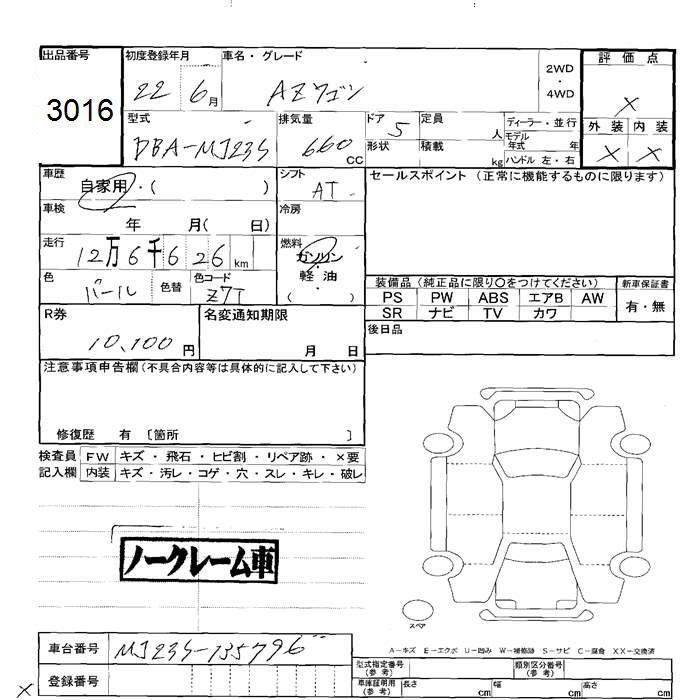 出品番号 初度登録年月 車名・グレード 2WD ・ 4WD 評価点
3016 22 6月 AZワゴン X
型式 排気量 ドア 5 定員 人 ディーラー・並行 外装 内装
DBA-MJ23S 660 CC 形状 積載 kg モデル年式 年 X X
ハンドル 左・右
車歴 シフト セールスポイント (正常に機能するものに限ります)
自家用・( ) AT
車検 冷房
年 月( 日)
走行 燃料
12万6千626km ガソリン
軽・油
( )
色 パール 色替 色コード Z7T
装備品 (純正品に限り○をつけてください) 新車保証書
PS PW ABS エアB AW 有・無
SR ナビ TV カワ
R券 名変通知期限 後日品
10,100円 月 日
注意事項申告欄(不具合内容等は具体的に記入して下さい)
修復歴 有 〔箇所 〕
検査員 FW キズ・飛石・ヒビ割・リペア跡・×要
記入欄 内装 キズ・汚レ・コゲ・穴・スレ・キレ・破レ
ノークレーム車
スペア
車台番号 MJ23S-135796
A-キズ E-エクボ U-凹み W-補修跡 S-サビ C-腐食 XX-交換済
登録番号
型式指定番号(参考) 類別区分番号(参考)
車庫証明用(参考) 長さ cm 幅 cm 高さ cm
X